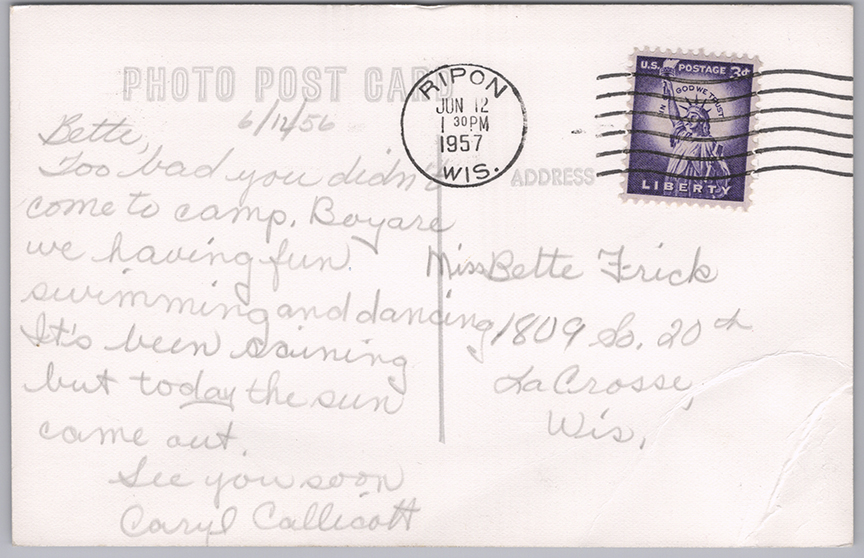 PHOTO POST CARD
6/12/56
Bette,
Too bad you didn't
come to camp. Boyare
we having fun.
swimming and dancing
It's been raining
but today the sun
came out.
See you soon
Caryl Callicott
RIPON
JUN 12
1 30 PM
1957
WIS.
U.S. POSTAGE 3¢
IN GOD WE TRUST
LIBERTY
ADDRESS
Miss Bette Frick
1809 So. 20th
LaCrosse,
Wis.